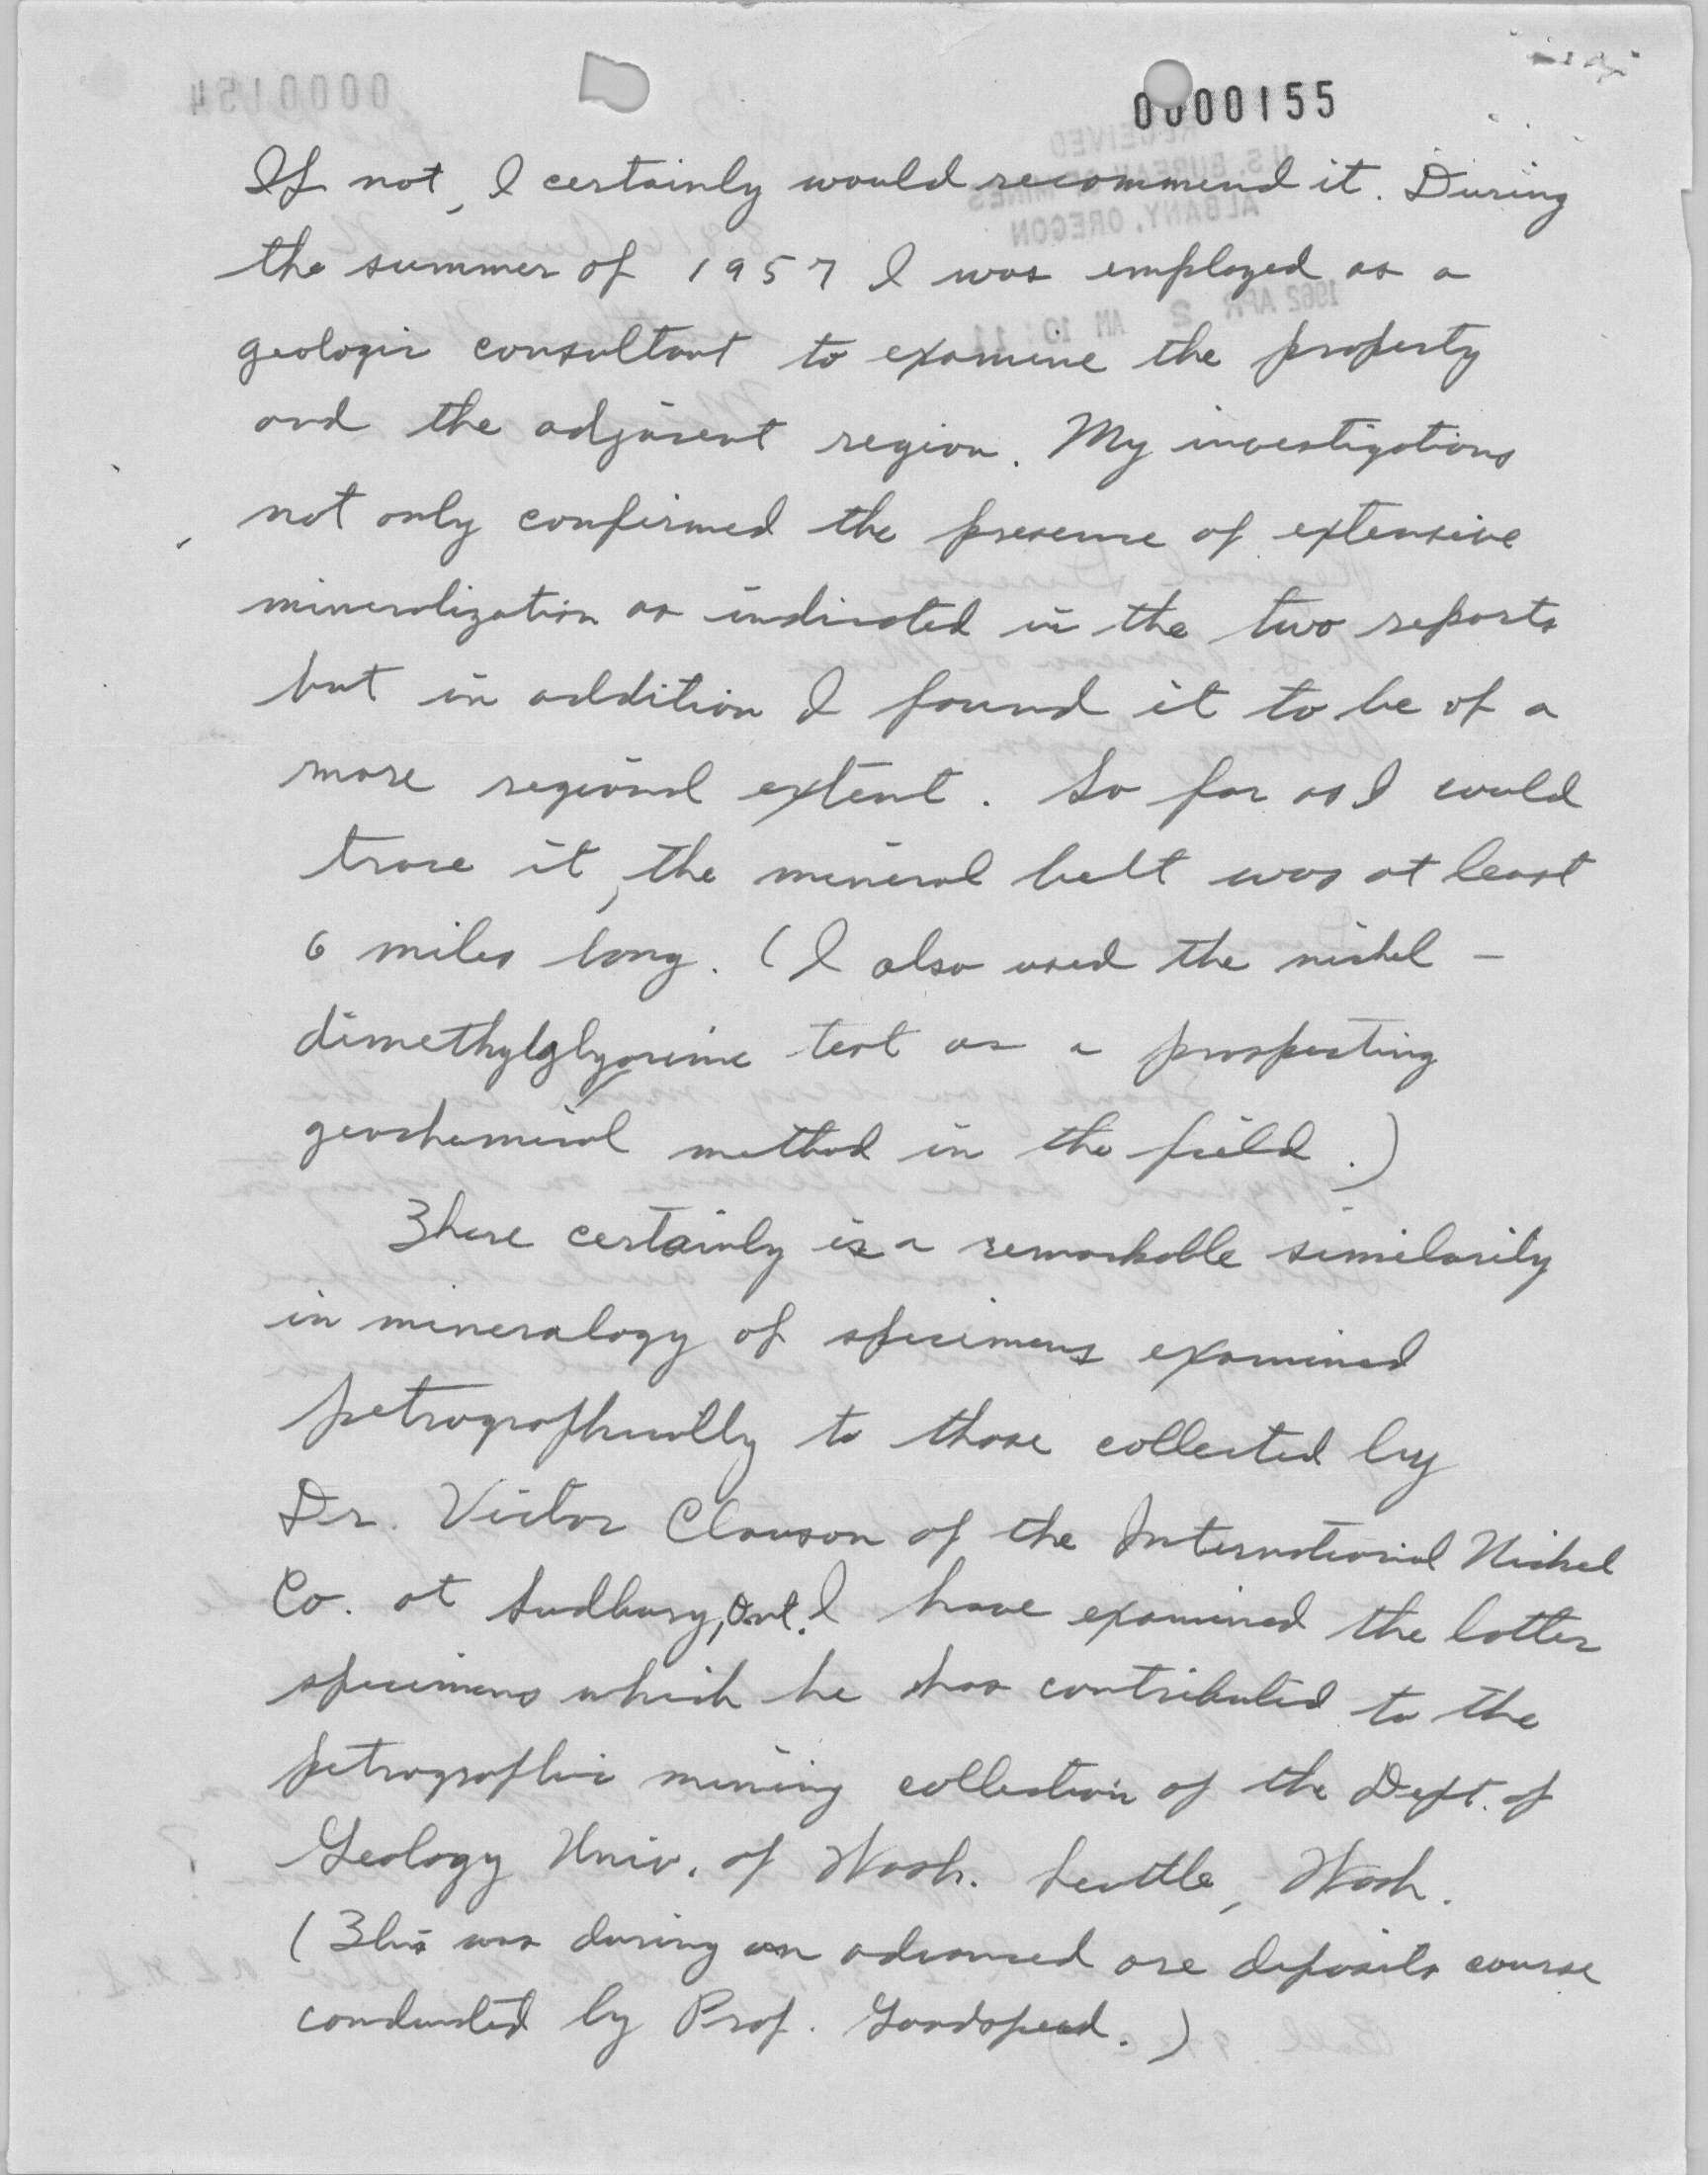 0000154
0000155
RECEIVED
U.S. BUREAU OF MINES
ALBANY, OREGON
1962 APR 2 AM 10:11
If not, I certainly would recommend it. During
the summer of 1957 I was employed as a
geologic consultant to examine the property
and the adjacent region. My investigations
not only confirmed the presence of extensive
mineralization as indicated in the two reports
but in addition I found it to be of a
more regional extent. So far as I could
trace it, the mineral belt was at least
6 miles long. (I also used the nickel -
dimethylglyoxime test as a prospecting
geochemical method in the field.)
There certainly is a remarkable similarity
in mineralogy of specimens examined
petrographically to those collected by
Dr. Victor Clauson of the International Nickel
Co. at Sudbury, Ont. I have examined the latter
specimens which he has contributed to the
petrographic mining collection of the Dept. of
Geology Univ. of Wash. Seattle, Wash.
(This was during an advanced ore deposits course
conducted by Prof. Goodspeed.)